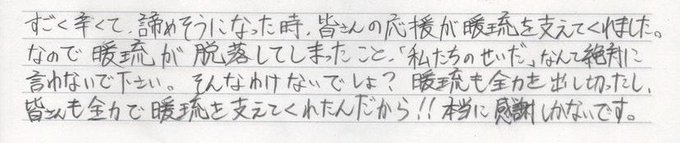 すごく辛くて、諦めそうになった時、皆さんの応援が暖琉を支えてくれました。
なので暖琉が脱落してしまったこと、「私たちのせいだ」なんて絶対に
言わないで下さい。そんなわけないでしょ？暖琉も全力を出し切ったし、
皆さんも全力で暖琉を支えてくれたんだから!!本当に感謝しかないです。